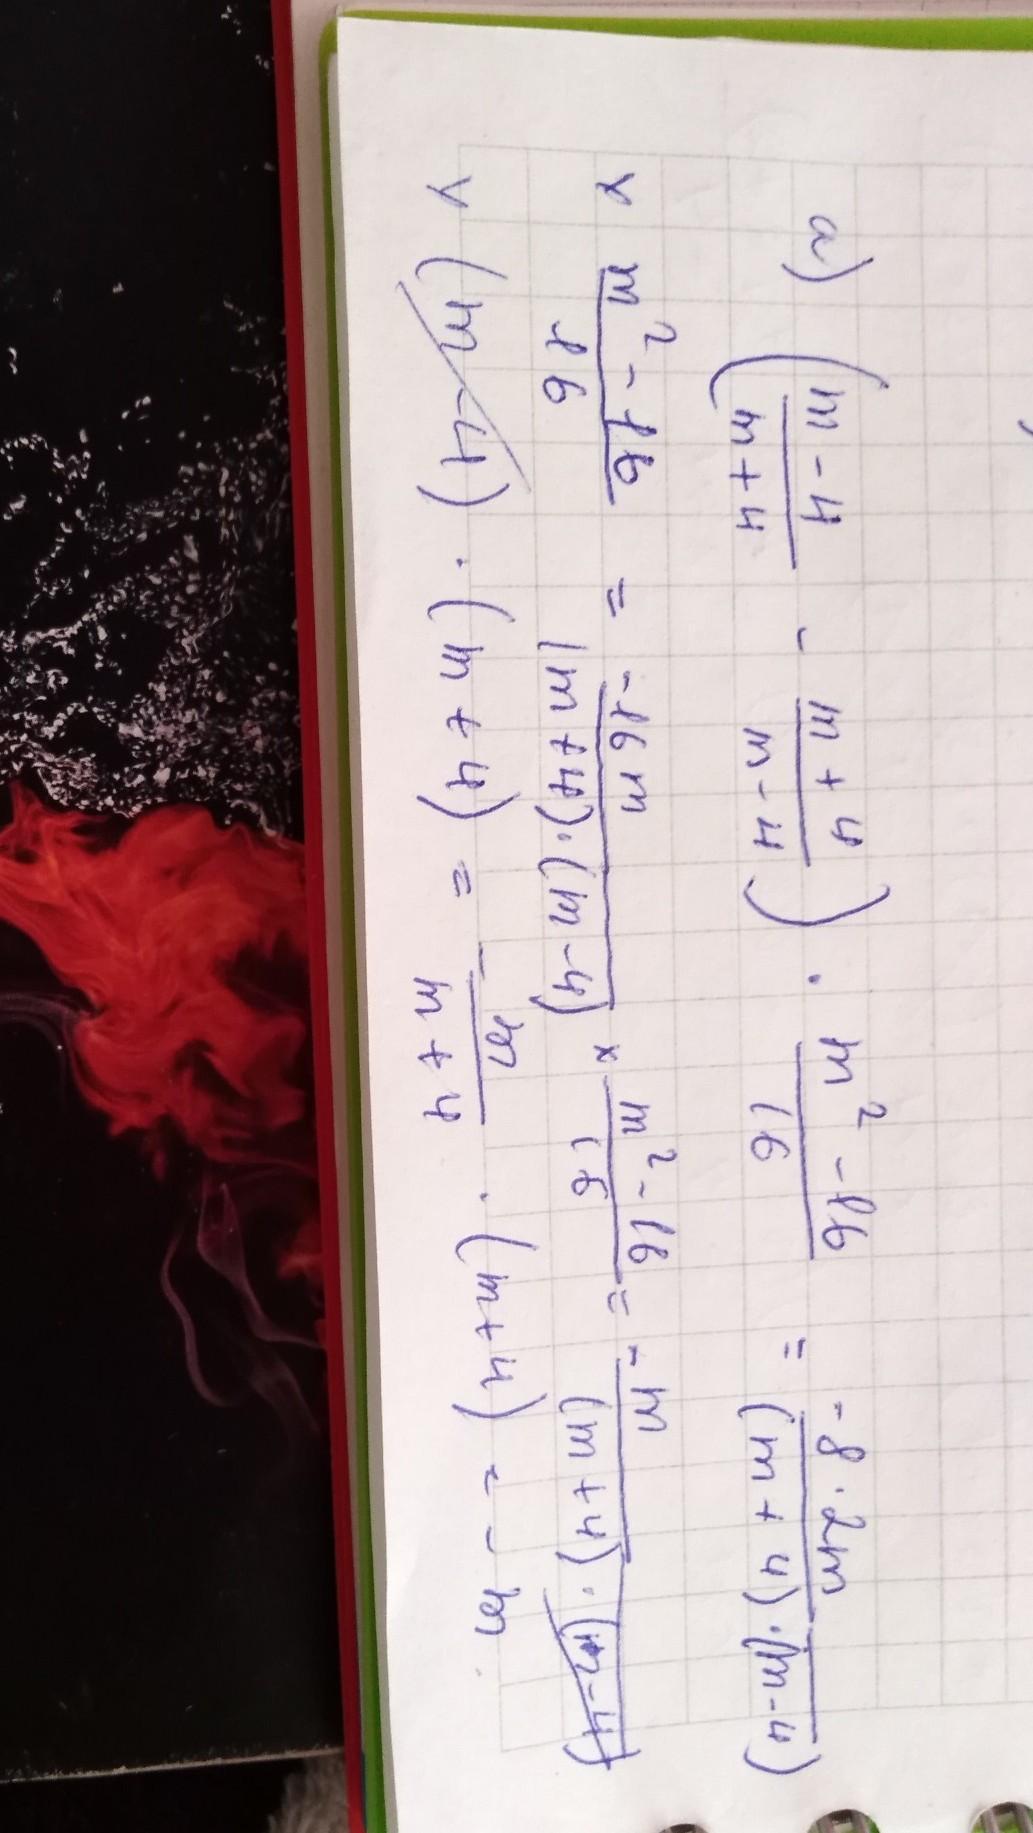 a) ( (m-4)/(m+4) - (m+4)/(m-4) ) · (m²-16)/16 = (-8·2m)/((m+4)·(m-4))
× (m²-16)/16 = (-16m)/((m+4)·(m-4)) × (m²-16)/16 = - m/((m+4)·(m-4))
× (m-4) · (m+4) = - m/(m+4) · (m+4) = - m.